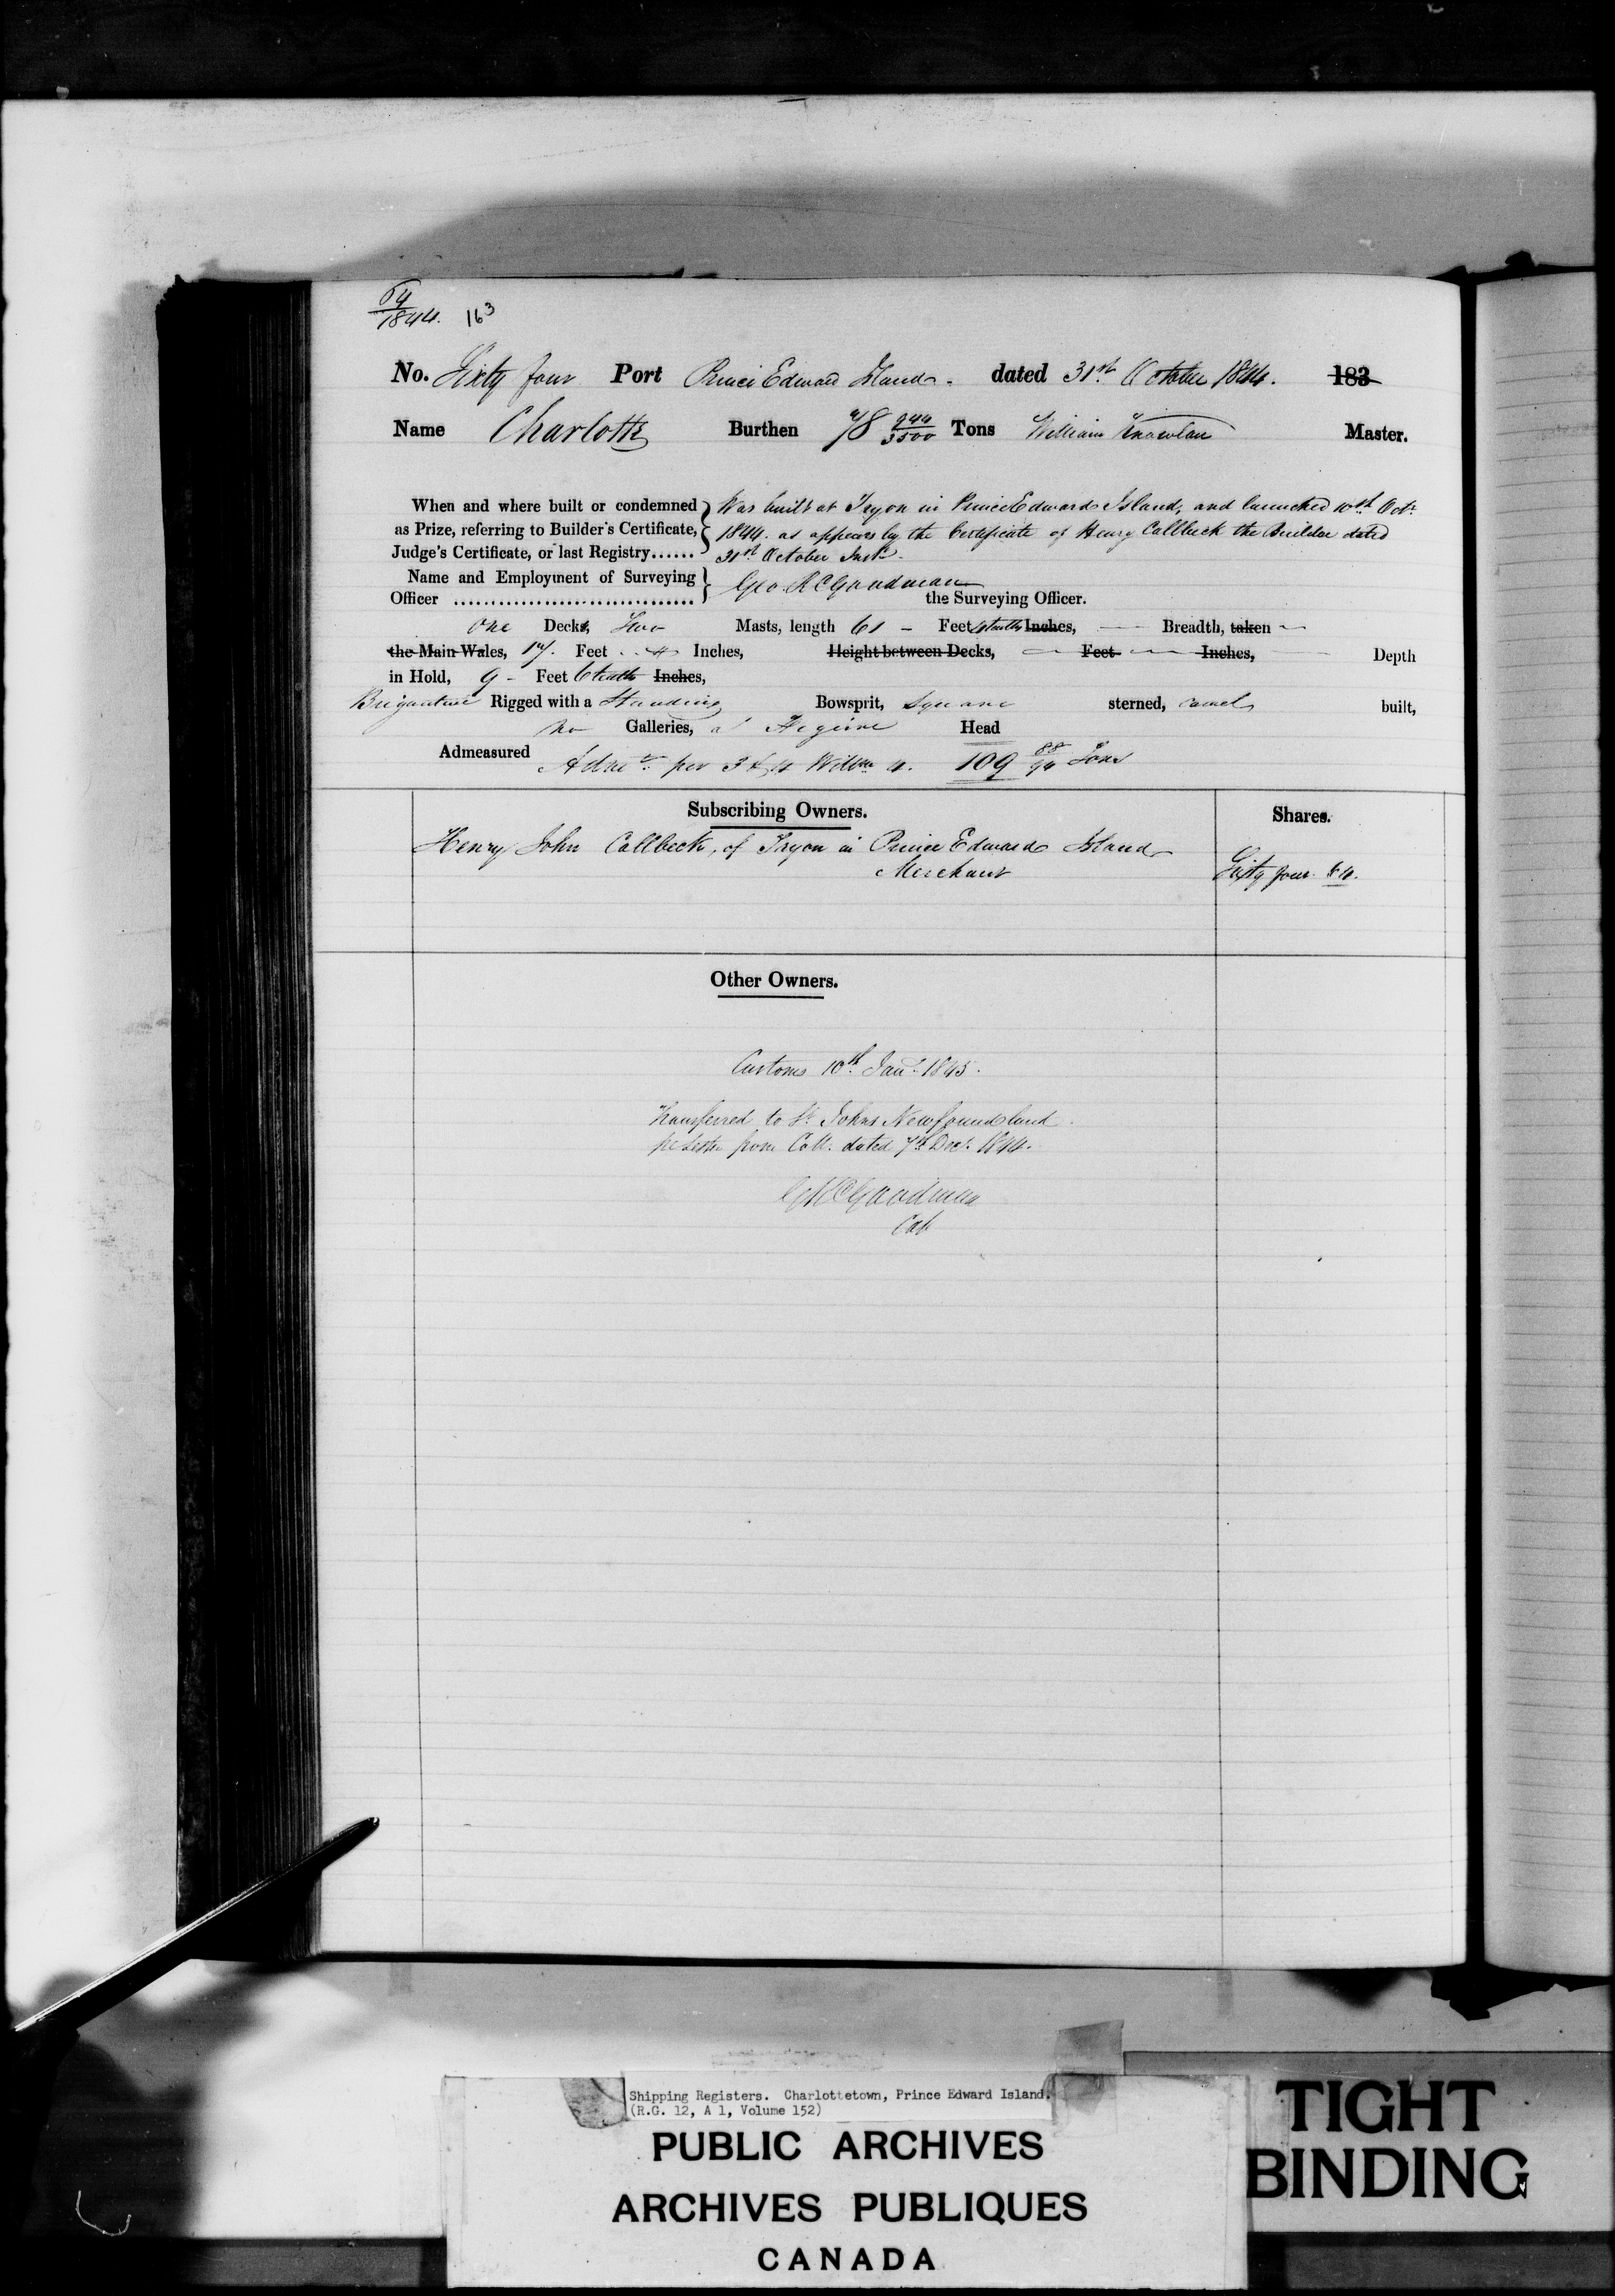 64
1844. 163
No. Sixty four Port Prince Edward Island. dated 31st October 1844. 183
Name Charlotte Burthen 78 944/3500 Tons William Knowlan Master.
When and where built or condemned Was built at Tryon in Prince Edward Island, and launched 10th Octr
as Prize, referring to Builder's Certificate, 1844. as appears by the Certificate of Henry Callbeck the Builder dated
Judge's Certificate, or last Registry...... 31st October Inst.
Name and Employment of Surveying Geo. R C Goodman
Officer .................................. the Surveying Officer.
One Decks, Two Masts, length 61 - Feet 4 tenths Inches, Breadth, taken
the Main Wales, 17. Feet . . 4 Inches, Height between Decks, Feet Inches, Depth
in Hold, 9 - Feet 6 tenths Inches,
Brigantine Rigged with a Standing Bowsprit, Square sterned, carvel built,
No Galleries, a Figure Head
Admeasured per 3 & 4 Willm 4. 109 88/94 Tons
Subscribing Owners. Shares.
Henry John Callbeck, of Tryon in Prince Edward Island
Merchant Sixty four 64.
Other Owners.
Customs 10th Jany. 1845.
Transferred to St. Johns Newfoundland
pr Letter from Coll. dated 7th Decr. 1844.
G R C Goodman
Coll
Shipping Registers. Charlottetown, Prince Edward Island.
(R.G. 12, A 1, Volume 152)
PUBLIC ARCHIVES
ARCHIVES PUBLIQUES
CANADA
TIGHT
BINDING